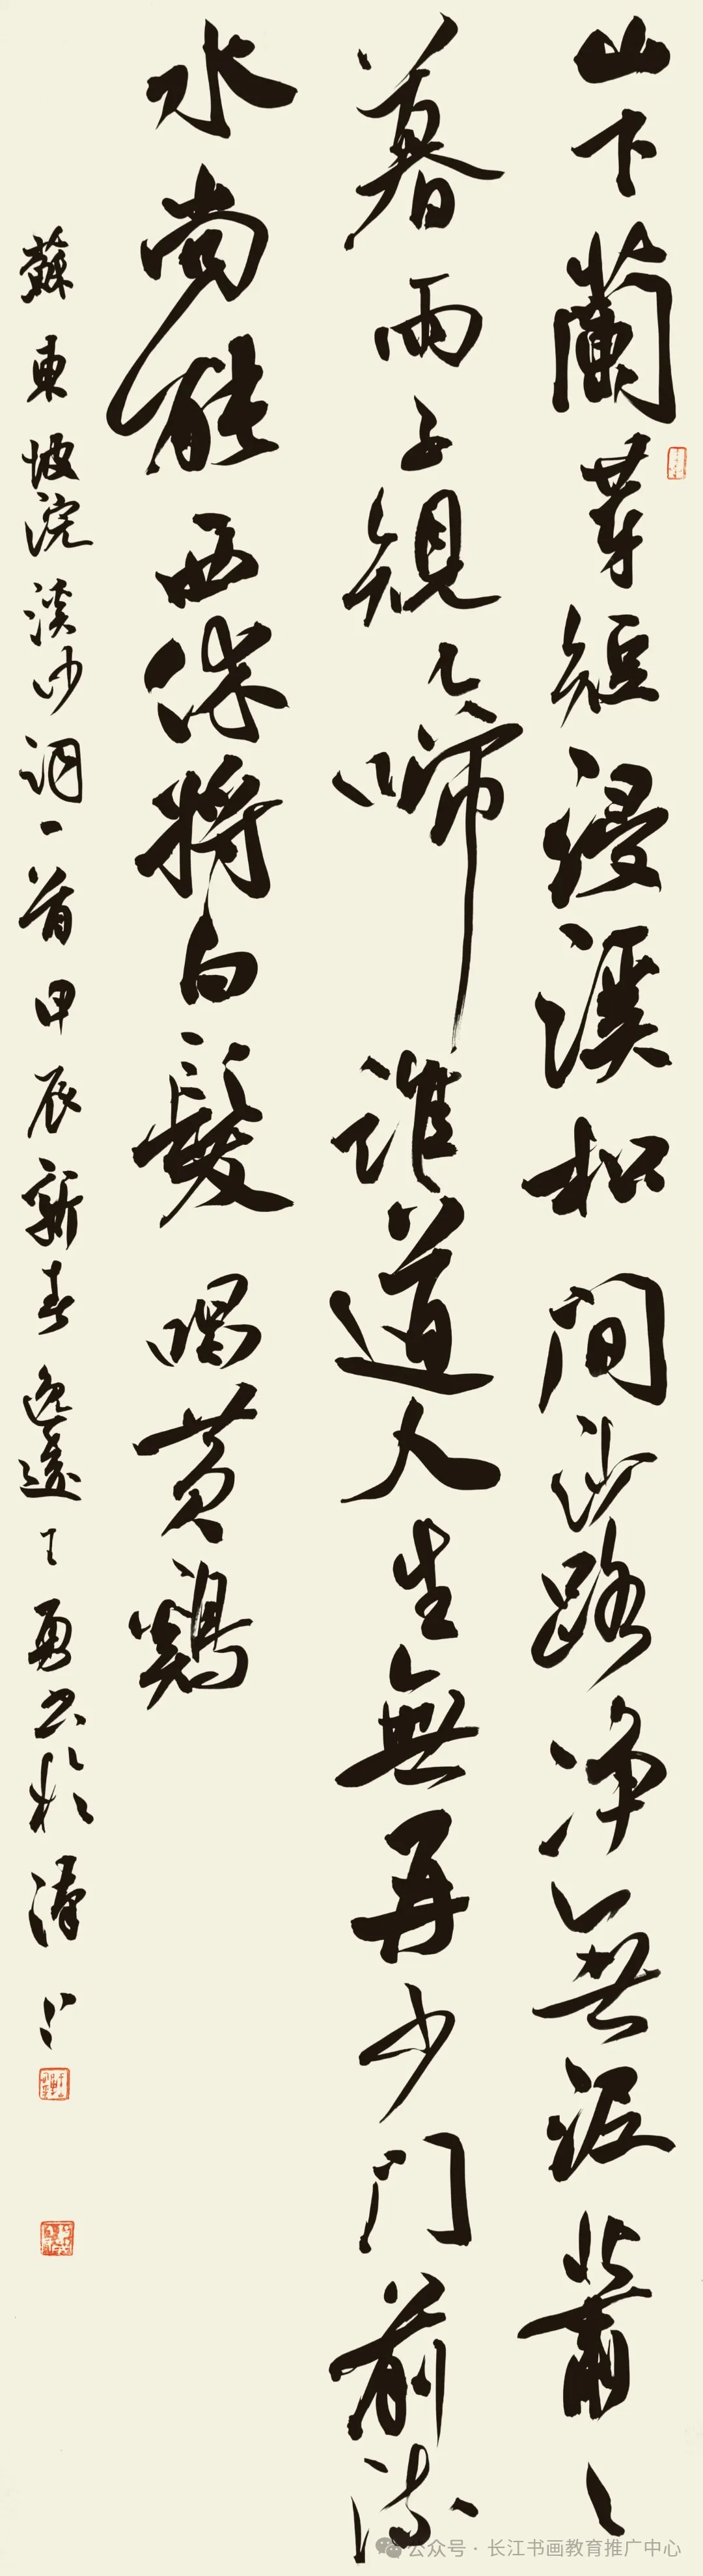 山下蘭芽短浸溪松间沙路净無泥蕭〻
暮雨子規〻啼誰道人生無再少门前流
水尚能西休將白髮唱黄鷄
蘇東坡浣溪沙词一首甲辰新春逸遠王勇书於漢上
公众号·长江书画教育推广中心